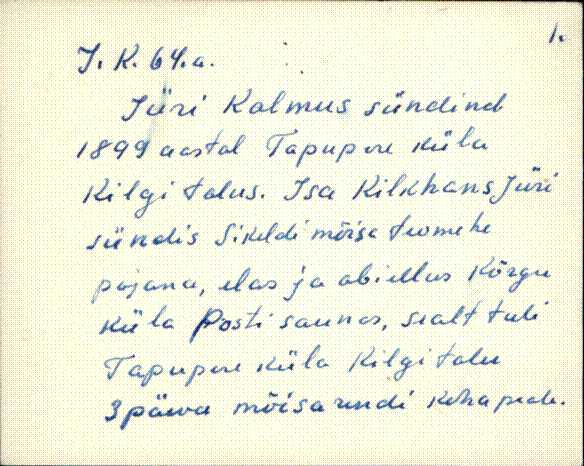 1.
J. K. 64.a.
Jüri Kalmus sündind
1899 aastal Tapupere küla
Kilgi talus. Isa Kilkhans Jüri
sündis Sikeldi mõisa teomehe
pojana, elas ja abiellus Kõrgu
küla Posti saunas, sealt tuli
Tapupere küla Kilgi talu
3 päeva mõisa rendi koha peale.